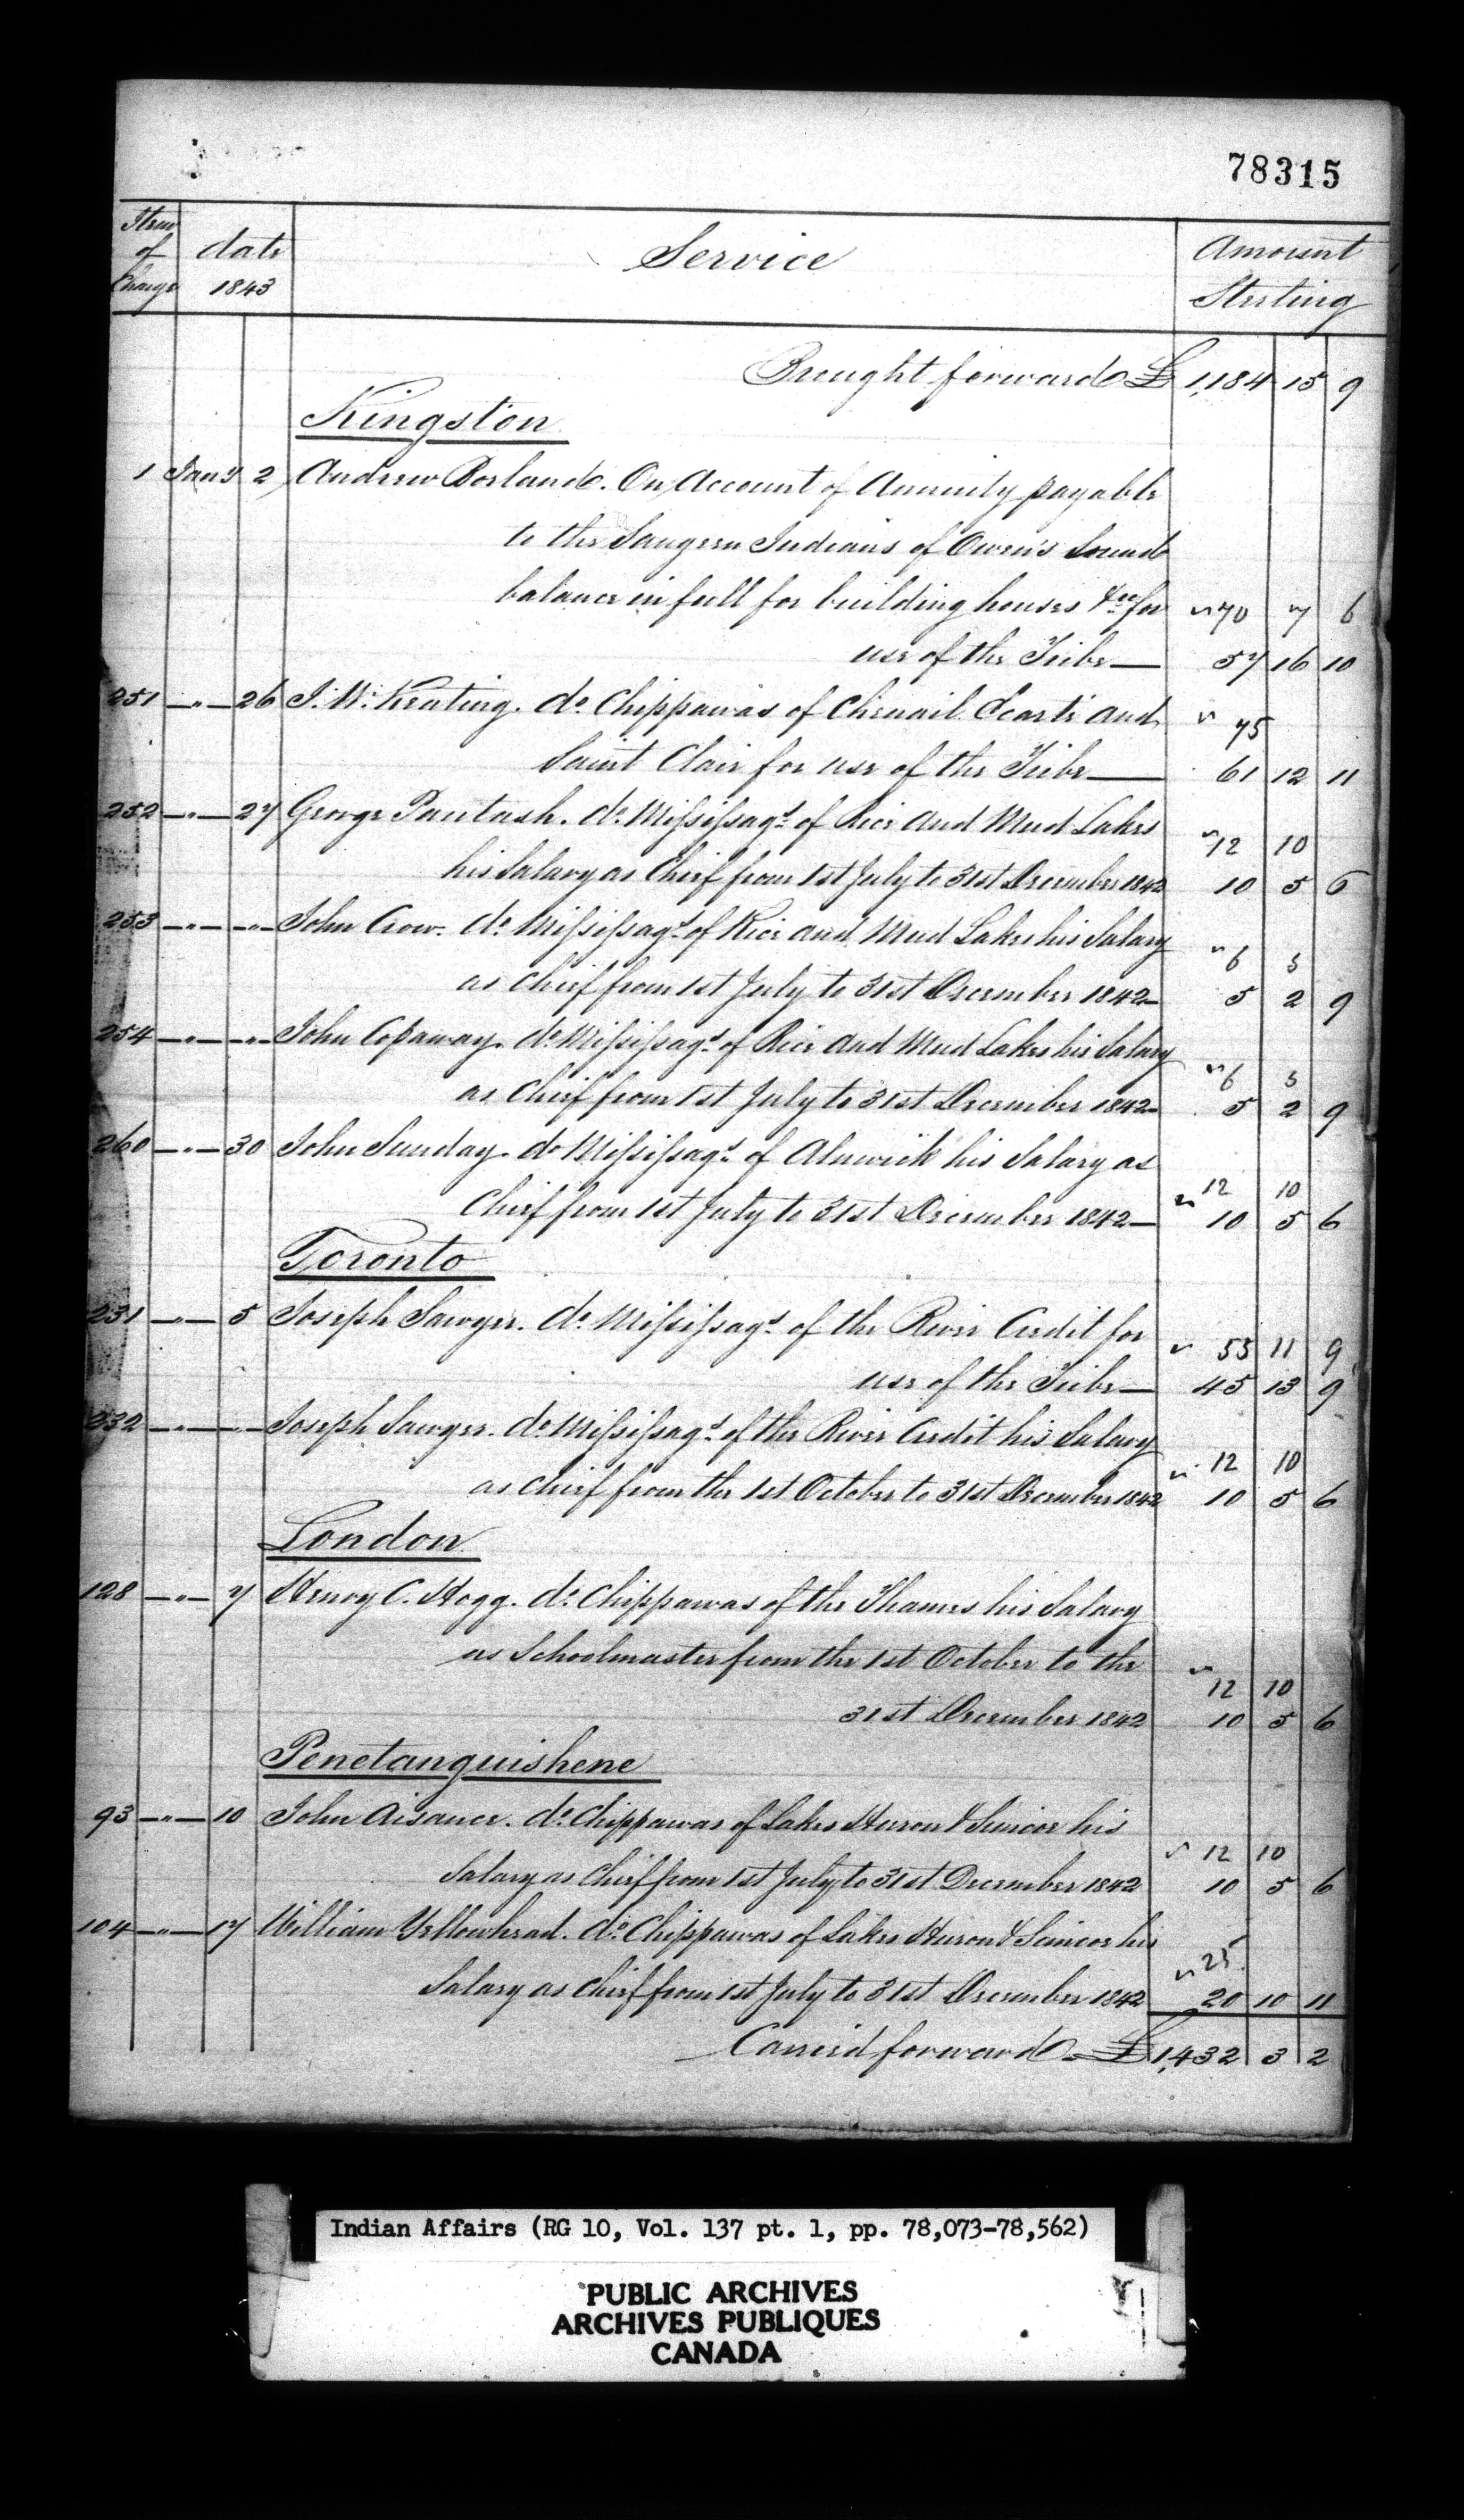 78315
Item of Charge date 1843 Service Amount Sterling
Brought forward £ 1,184 15 9
Kingston
1 Jany 2 Andrew Borland. On Account of Annuity payable
to the Saugeen Indians of Owen's Sound
balance in full for building houses &ca for 70 7 6
use of the Tribe — 57 16 10
251 —"— 26 J. W. Keating. do Chippawas of Chenail Ecarté and 75
Saint Clair for use of the Tribe — 61 12 11
252 —"— 27 George Pautash. do Missisags of Rice and Mud Lakes 12 10
his Salary as Chief from 1st July to 31st December 1842 10 5 6
253 —"— —"— John Crow. do Missisags of Rice and Mud Lakes his Salary 6 5
as Chief from 1st July to 31st December 1842 — 5 2 9
254 —"— —"— John Copaway. do Missisags of Rice and Mud Lakes his Salary 6 5
as Chief from 1st July to 31st December 1842 — 5 2 9
260 —"— 30 John Sunday. do Missisags of Alnwick his Salary as 12 10
Chief from 1st July to 31st December 1842 — 10 5 6
Toronto
231 —"— 5 Joseph Sawyer. do Missisags of the River Credit for 55 11 9
use of the Tribe — 45 13 9
232 —"— —"— Joseph Sawyer. do Missisags of the River Credit his Salary 12 10
as Chief from the 1st October to 31st December 1842 10 5 6
London
128 —"— 7 Henry C. Hogg. do Chippawas of the Thames his Salary
as Schoolmaster from the 1st October to the 12 10
31st December 1842 10 5 6
Penetanguishene
93 —"— 10 John Aisance. do Chippawas of Lakes Huron & Simcoe his 12 10
Salary as Chief from 1st July to 31st December 1842 10 5 6
104 —"— 17 William Yellowhead. do Chippawas of Lakes Huron & Simcoe his 25
Salary as Chief from 1st July to 31st December 1842 20 10 11
Carried forward £ 1,432 3 2
Indian Affairs (RG 10, Vol. 137 pt. 1, pp. 78,073-78,562)
PUBLIC ARCHIVES
ARCHIVES PUBLIQUES
CANADA